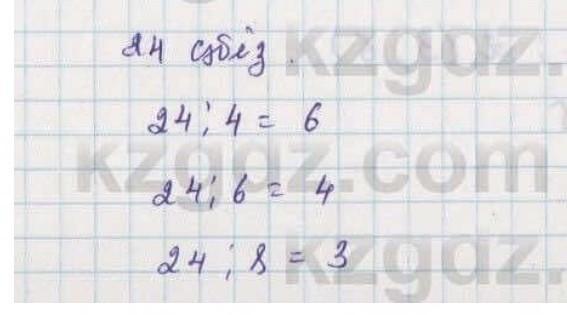 24 сәбіз.
24 : 4 = 6
24 : 6 = 4
24 : 8 = 3
kzgdz.
kzgdz.com
kzgdz.